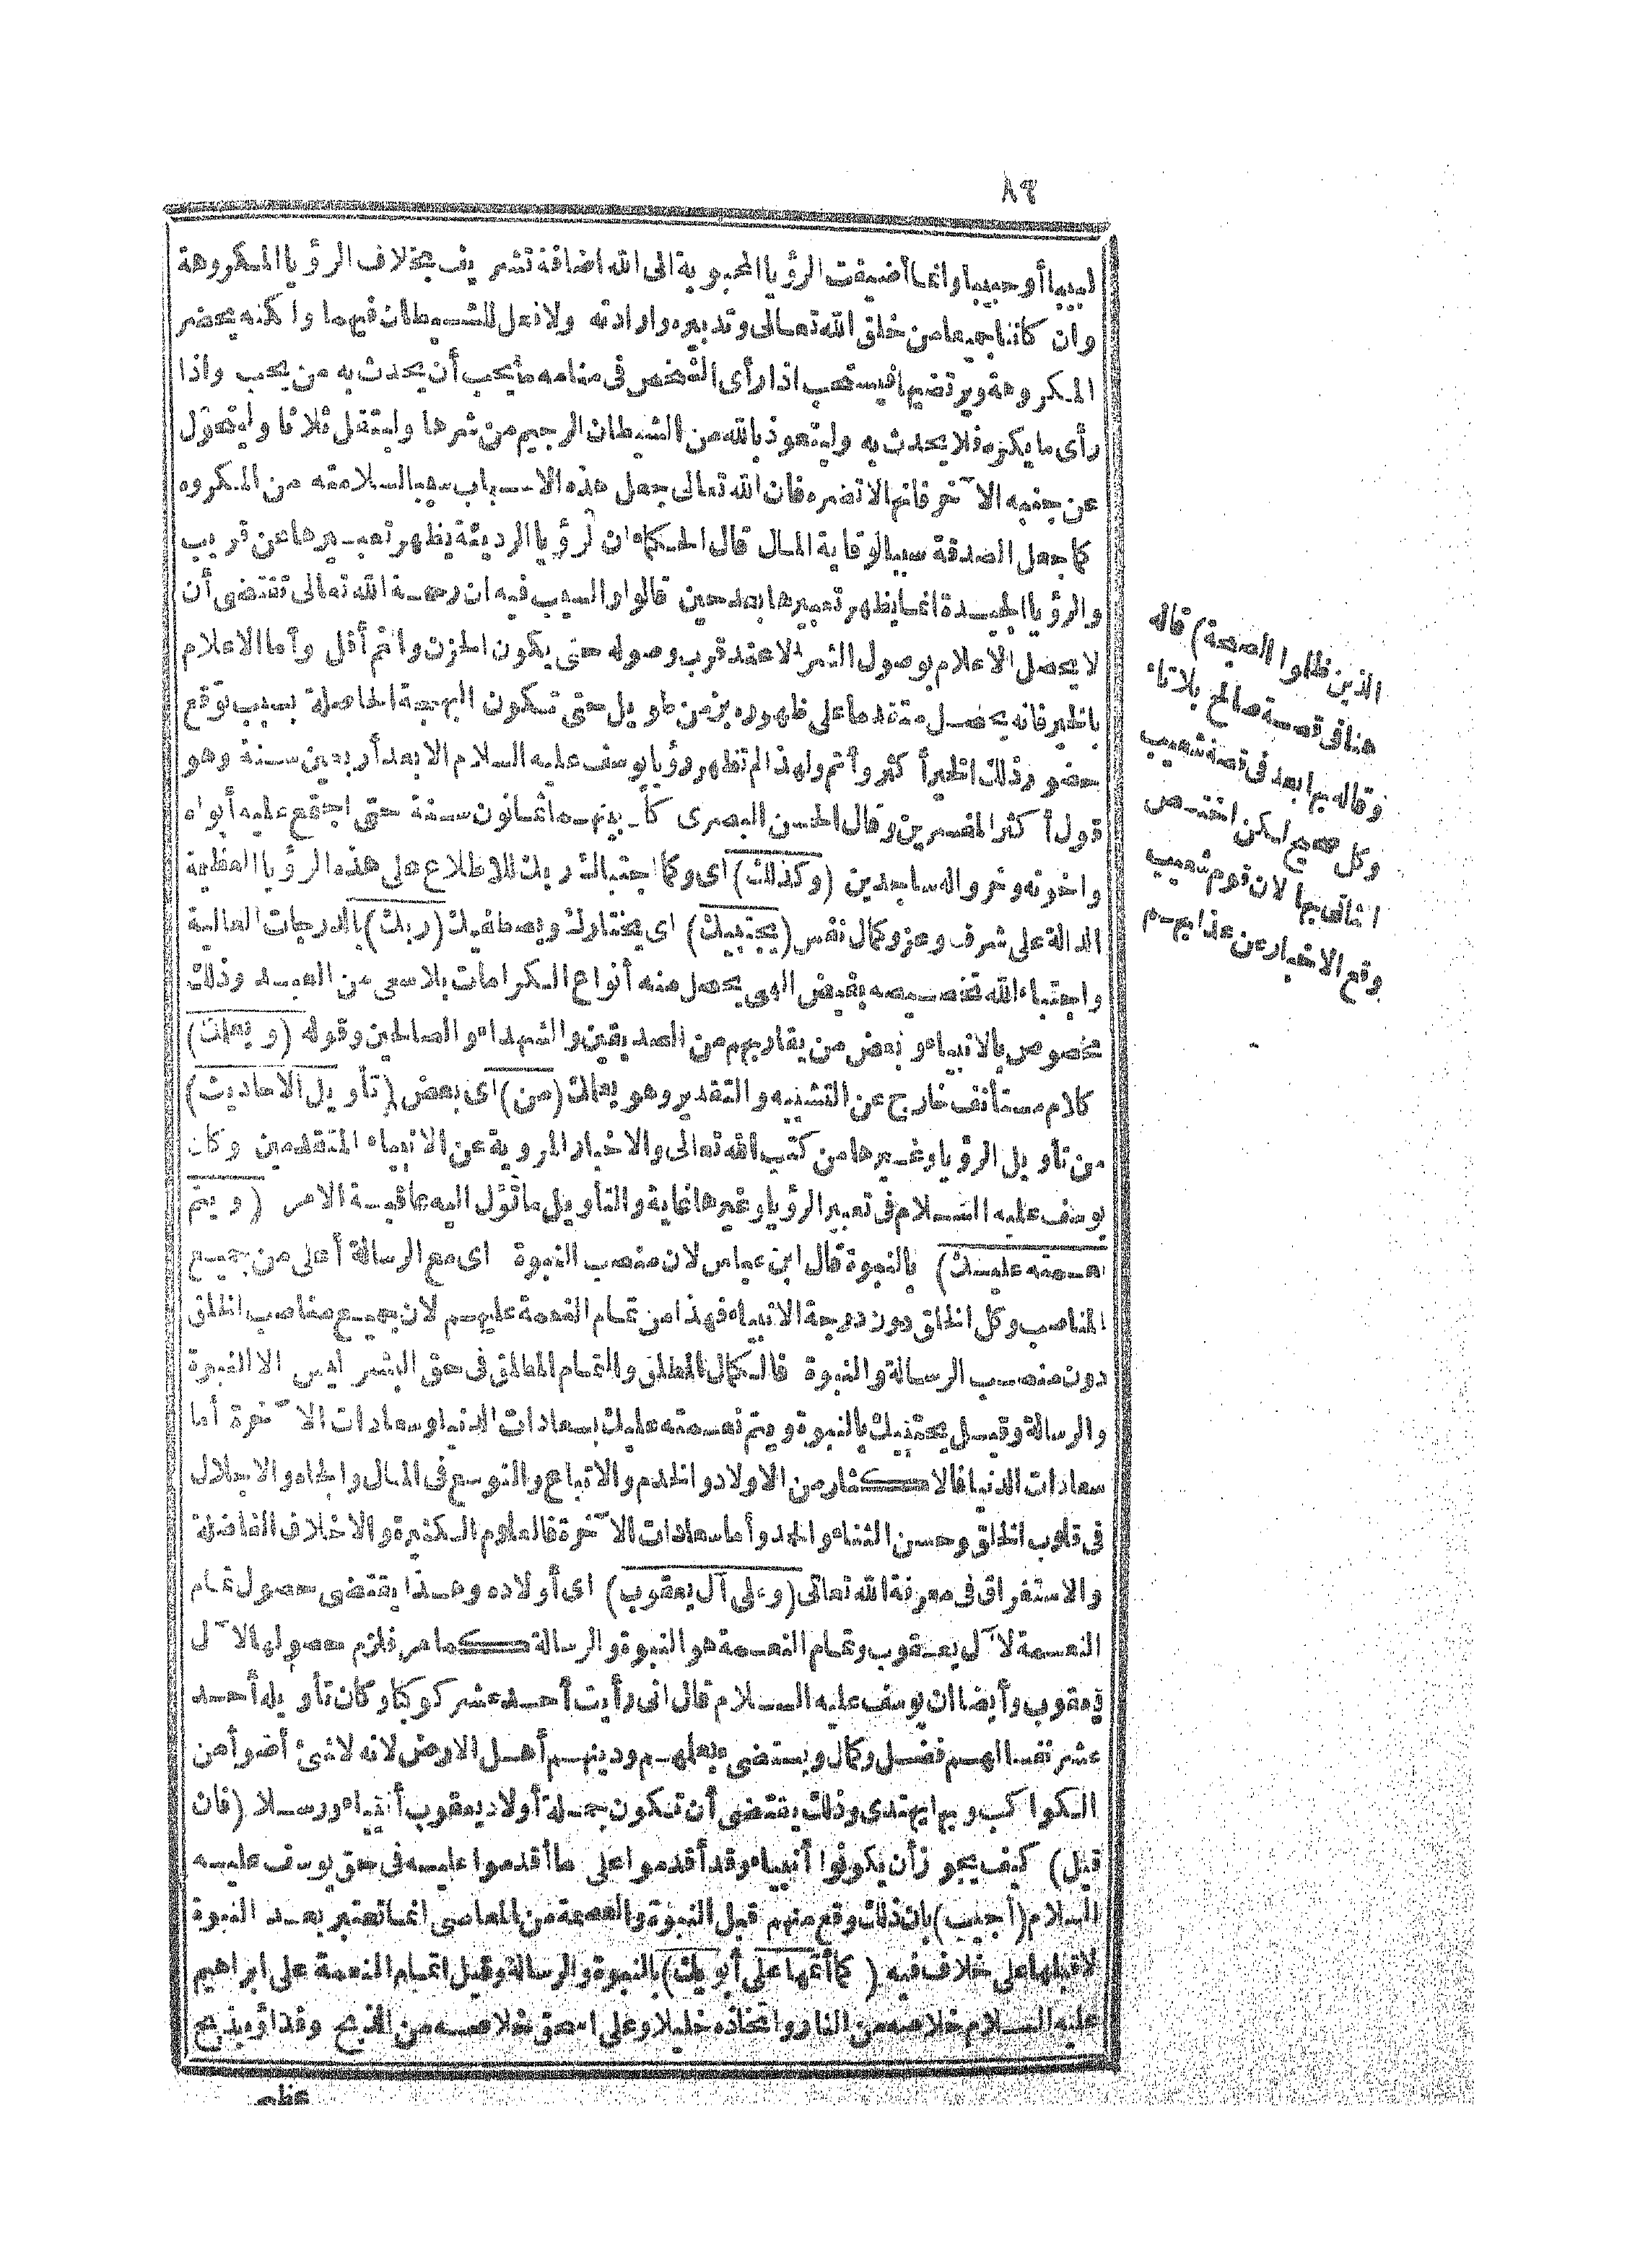 ٨٩
لبيبا أو حبيبا وانما أضيفت الرؤيا المحبوبة الى الله اضافة تشريف بخلاف الرؤيا المكروهة
وان كانتا جميعا من خلق الله تعالى وتدبيره وارادته ولا فعل للشيطان فيهما ولكنه يحضر
المكروهة ويرتضيها فيستحب اذا رأى الشخص فى منامه ما يحب أن يحدث به من يحب واذا
رأى ما يكره فلا يحدث به وليتعوذ بالله من الشيطان الرجيم من شرها وليتفل ثلاثا وليتحوّل
عن جنبه الآخر فانها لا تضره فان الله تعالى جعل هذه الاسباب سببا لسلامته من المكروه
كما جعل الصدقة سببا لوقاية المال قال الحكماء ان الرؤيا الرديئة يظهر تعبيرها عن قريب
والرؤيا الجيدة انما يظهر تعبيرها بعد حين قالوا والسبب فيه ان رحمة الله تعالى تقتضى أن
لا يحصل الاعلام بوصول الشر الا عند قرب وصوله حتى يكون الحزن والغم أقل وأما الاعلام
بالخير فانه يحصل متقدما على ظهوره بزمن طويل حتى تكون البهجة الحاصلة بسبب توقع
حضور ذلك الخير أكثر وأتم ولهذا لم تظهر رؤيا يوسف عليه السلام الا بعد أربعين سنة وهو
قول أكثر المفسرين وقال الحسن البصرى كان بينهما ثمانون سنة حتى اجتمع عليه أبواه
واخوته وخروا له ساجدين (وكذلك) اى وكما اجتباك ربك للاطلاع على هذه الرؤيا العظيمة
الدالة على شرف وعز وكمال نفس (يجتبيك) اى يختارك ويصطفيك (ربك) بالدرجات العالية
واجتباء الله تخصيصه بفيض الهى يحصل منه أنواع الكرامات بلا سعى من العبد وذلك
مخصوص بالانبياء وبعض من يقاربهم من الصديقين والشهداء والصالحين وقوله (ويعلمك)
كلام مستأنف خارج عن التشبيه والتقدير وهو يعلمك (من) اى بعض (تأويل الاحاديث)
من تأويل الرؤيا وغيرها من كتب الله تعالى والاخبار المروية عن الانبياء المتقدمين وكان
يوسف عليه السلام فى تعبير الرؤيا وغيرها غاية والتأويل ما تؤل اليه عاقبة الامر (ويتم
نعمته عليك) بالنبوة قال ابن عباس لان منصب النبوة اى مع الرسالة أعلى من جميع
المناصب وكل الخلق دون درجة الانبياء فهذا من تمام النعمة عليهم لان جميع مناصب الخلق
دون منصب الرسالة والنبوة فالكمال المطلق والتمام المطلق فى حق البشر ليس الا النبوة
والرسالة وقيل يجتبيك بالنبوة ويتم نعمته عليك بسعادات الدنيا وسعادات الآخرة أما
سعادات الدنيا فالاكثار من الاولاد والخدم والاتباع والتوسع فى المال والجاه والاجلال
فى قلوب الخلق وحسن الثناء والحمد وأما سعادات الآخرة فالعلوم الكثيرة والاخلاق الفاضلة
والاستغراق فى معرفة الله تعالى (وعلى آل يعقوب) اى أولاده وهذا يقتضى حصول تمام
النعمة لآل يعقوب وتمام النعمة هو النبوة والرسالة كما مر فلزم حصولها لآل
يعقوب وأيضا ان يوسف عليه السلام قال انى رأيت أحد عشر كوكبا وكان تأويله أحد
عشر نفسا لهم فضل وكمال ويستضىء بعلمهم ودينهم أهل الارض لانه لا شئ أضوأ من
الكواكب وبها يهتدى وذلك يقتضى أن تكون جملة أولاد يعقوب أنبياء ورسلا (فان
قيل) كيف يجوز أن يكونوا أنبياء وقد أقدموا على ما أقدموا عليه فى حق يوسف عليه
السلام (أجيب) بان ذلك وقع منهم قبل النبوة والعصمة من المعاصى انما تعتبر بعد النبوة
لا قبلها على خلاف فيه (كما أتمها على أبويك) بالنبوة والرسالة وقيل اتمام النعمة على ابراهيم
عليه السلام خلاصه من النار واتخاذه خليلا وعلى اسحق خلاصه من الذبح وفداؤه بذبح
عظيم
الذين ظلموا الصيحة) قاله
هنا فى قصة صالح بلا تاء
وقاله بها بعد فى قصة شعيب
وكل صحيح لكن اختص
الثانى بها لان قوم شعيب
وقع الاخبار عن عذابهم